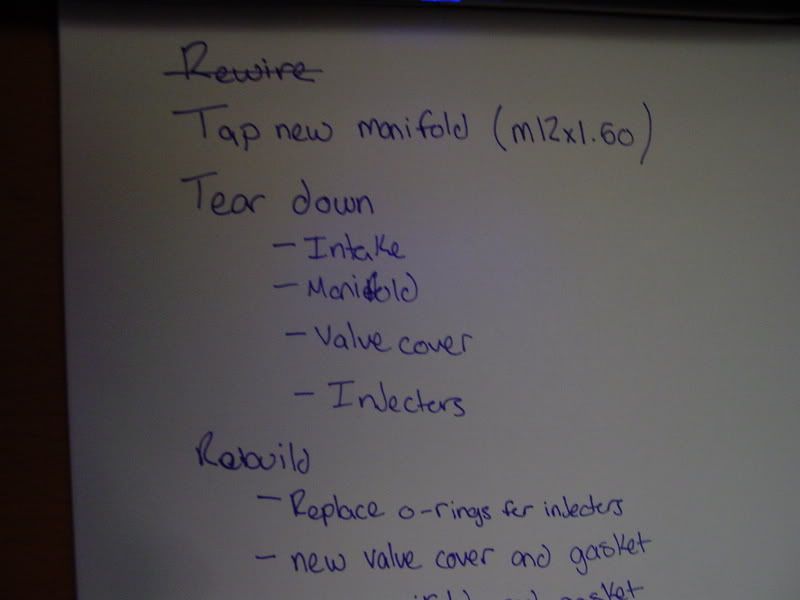 Rewire
Tap new manifold (m12x1.60)
Tear down
- Intake
- Manifold
- Valve cover
- Injecters
Rebuild
- Replace o-rings for injecters
- new valve cover and gasket
and gasket